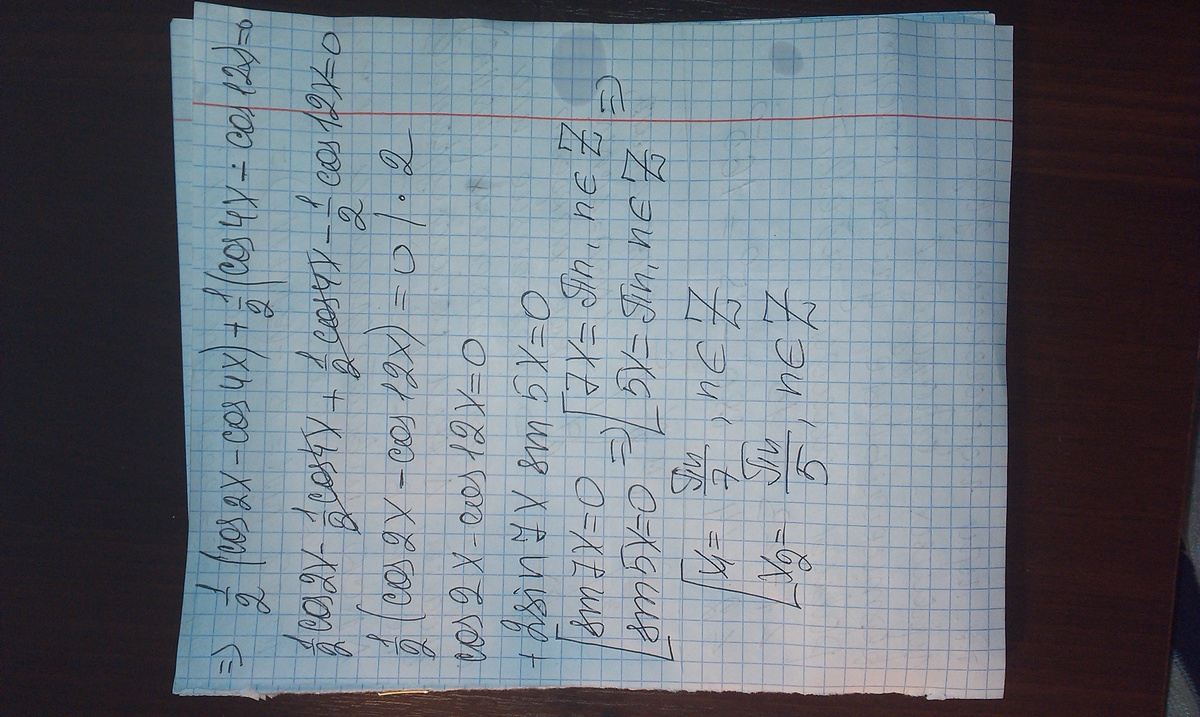 => 1/2 (cos2x - cos4x) + 1/2 (cos4x - cos12x)=0
1/2 cos2x - 1/2 cos4x + 1/2 cos4x - 1/2 cos12x=0
1/2 (cos2x - cos12x) = 0 | · 2
cos2x - cos12x=0
+ 2sin7x sin5x=0
[sin7x=0 => [7x = πn, n∈Z
[sin5x=0 [5x = πn, n∈Z =>
[x₁ = πn/7, n∈Z
[x₂ = πn/5, n∈Z